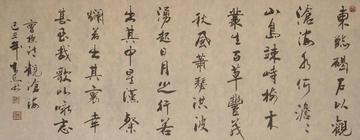 東臨碣石以觀
滄海水何澹々
山島竦峙樹木
叢生百草豐茂
秋風蕭瑟洪波
湧起日月之行若
出其中星漢燦
爛若出其裏幸
甚至哉歌以咏志
曹操詩觀滄海